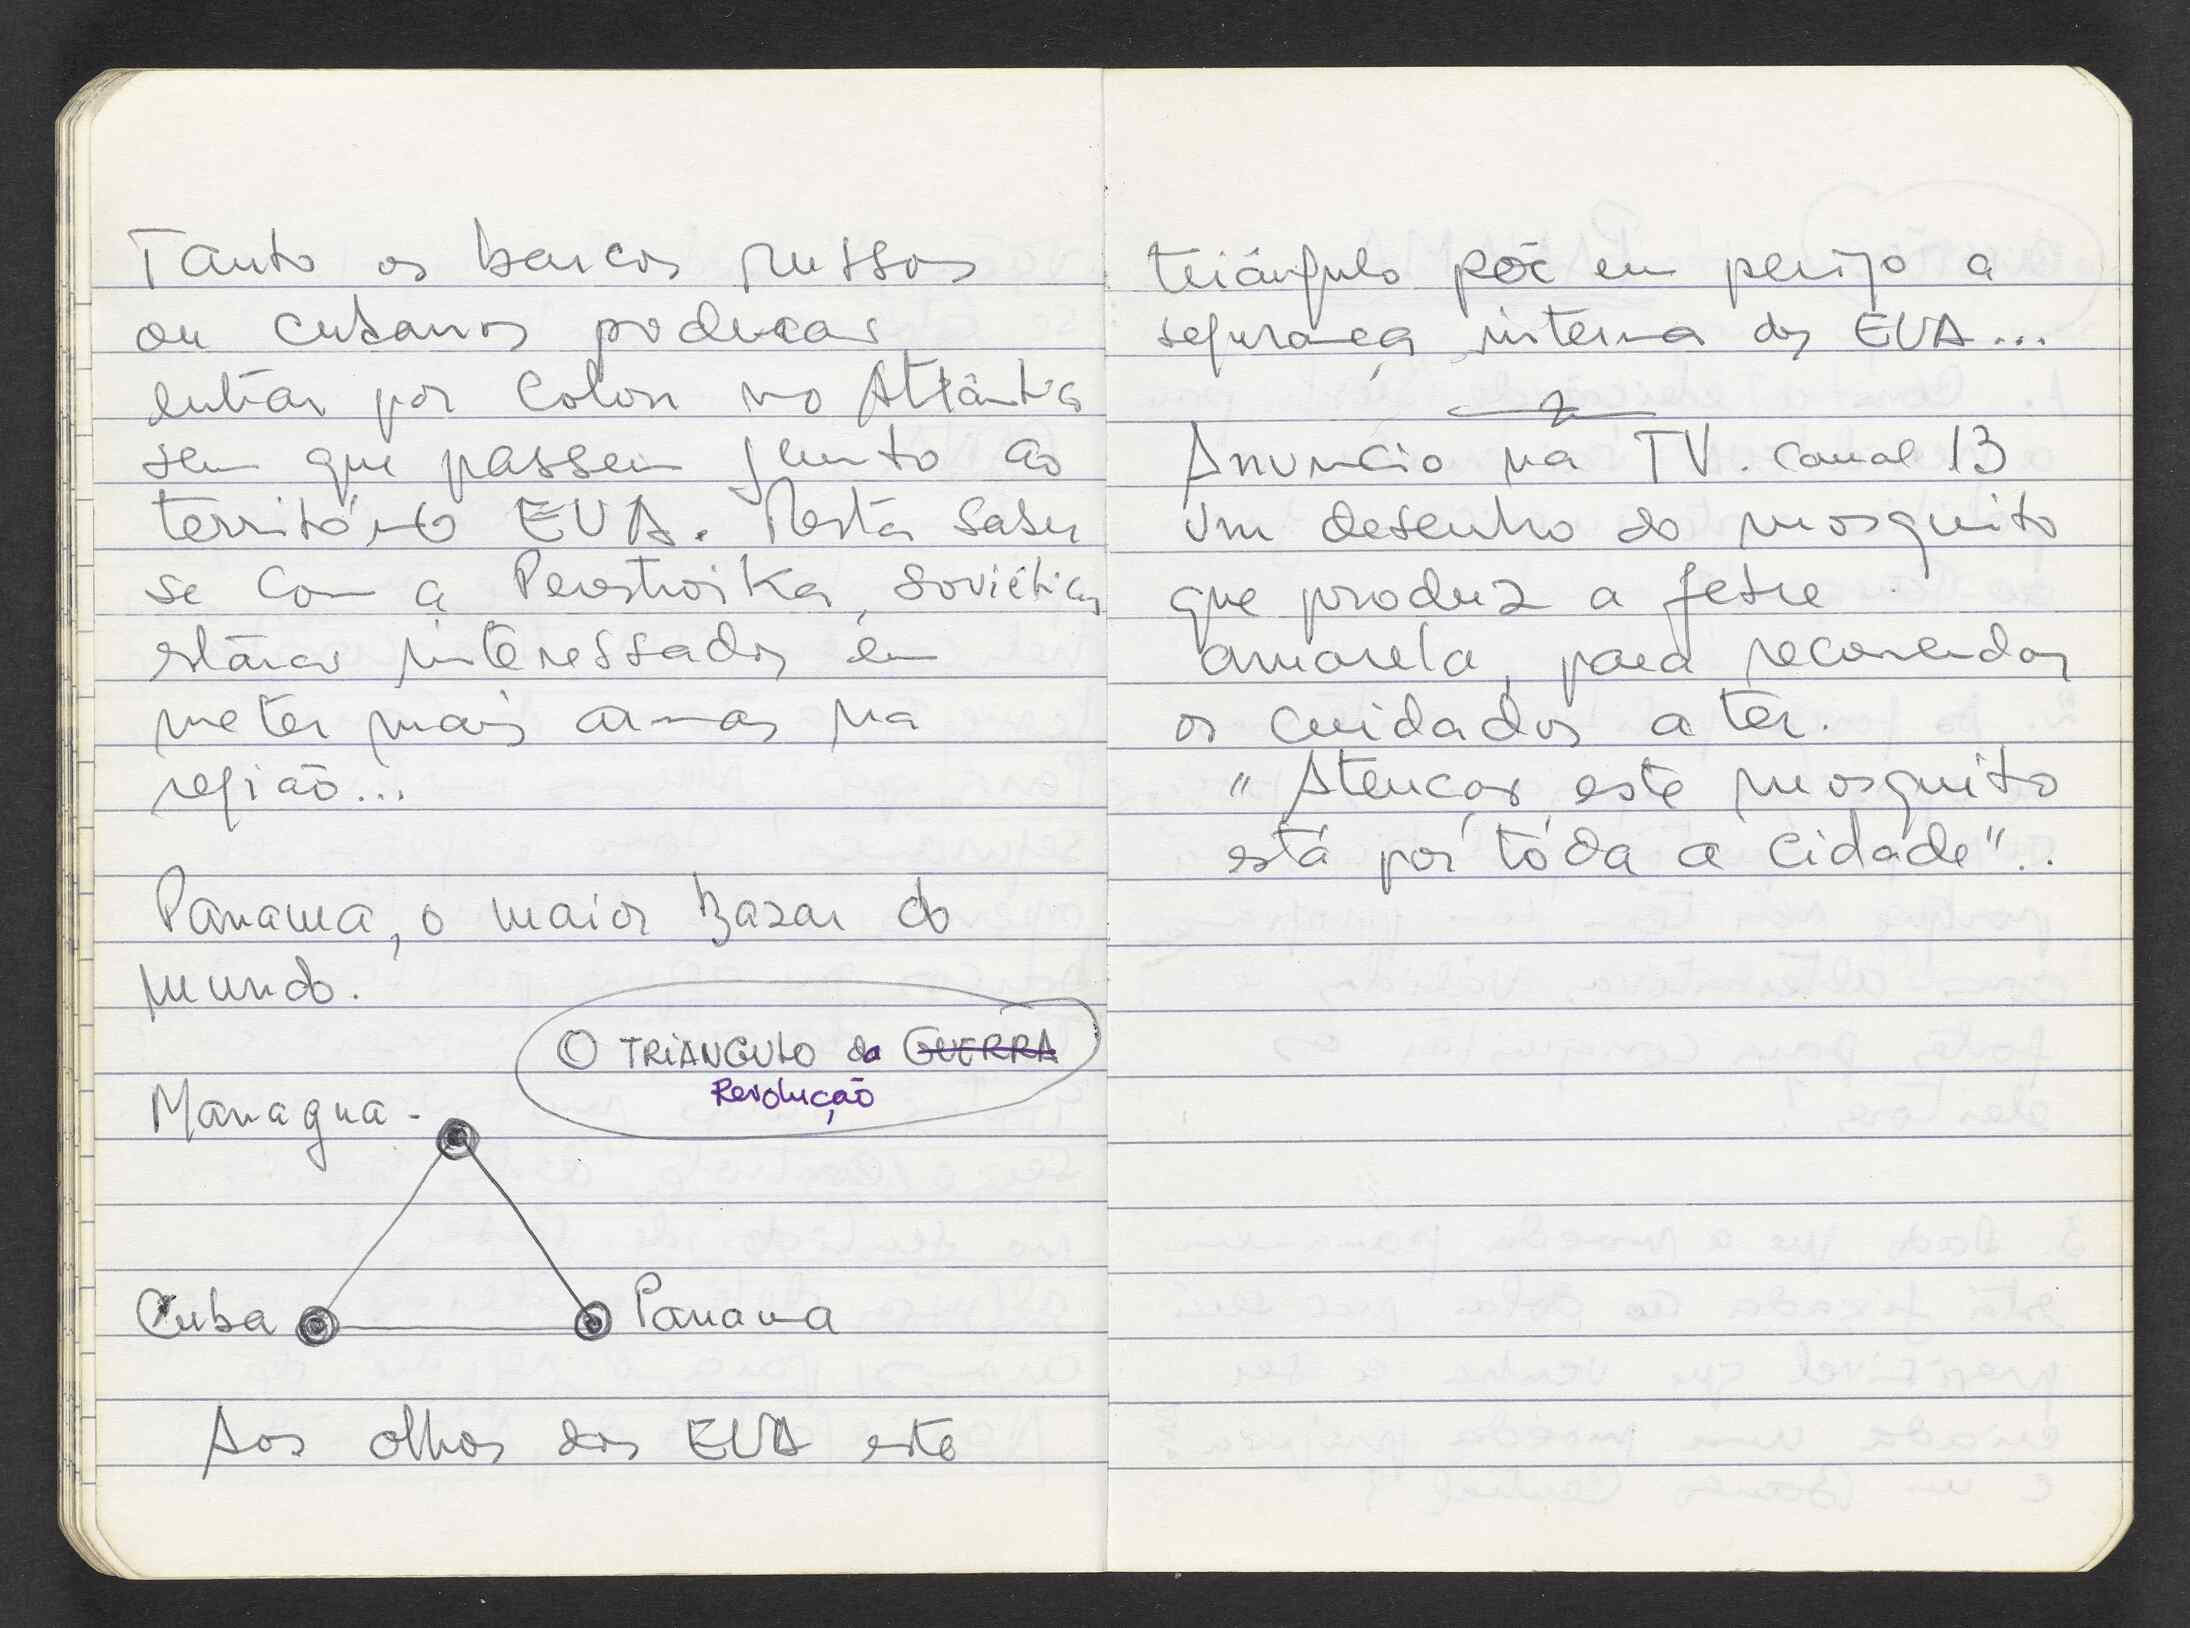 Tanto os barcos russos
ou cubanos poderão
entrar por Colon no Atlântico
sem que passem junto ao
território EUA. Resta saber
se com a Perestroika, soviéticos
estarão interessados em
meter mais armas na
região...
Panama, o maior bazar do
mundo.
O TRIANGULO da GUERRA
Revolução
Managua -
Cuba
Panama
Aos olhos dos EUA este
triângulo põe em perigo a
segurança interna dos EUA...
Anuncio na TV. canal 13
Um desenho do mosquito
que produz a febre
amarela, para recomendar
os cuidados a ter.
" Atenção este mosquito
está por tôda a cidade"..